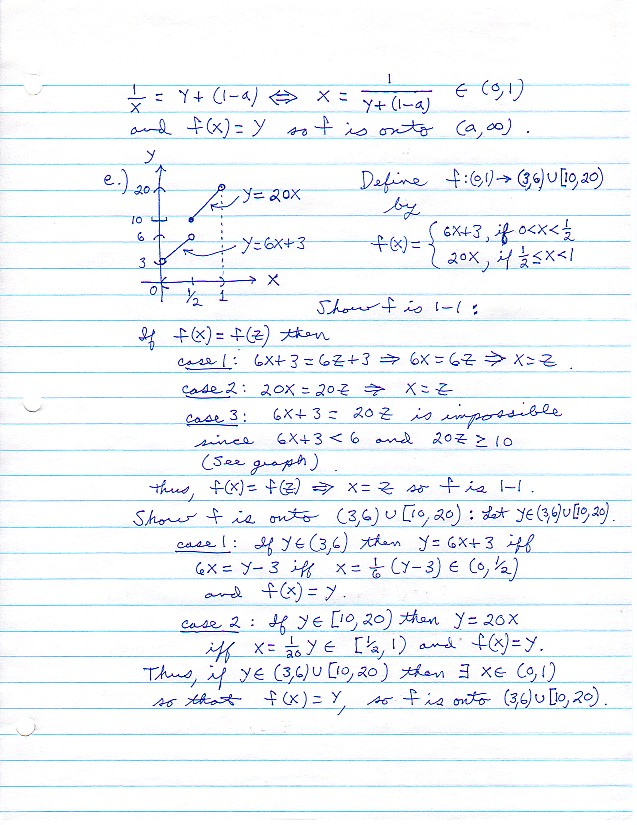 1/x = y + (1-a) ⟺ x = 1/(y + (1-a)) ∈ (0,1)
and f(x) = y so f is onto (a,∞).
e.) y 20 10 6 3 0 1/2 1 x y = 20x y = 6x+3
Define f:(0,1)→(3,6)∪[10,20)
by
f(x) = { 6x+3, if 0<x<1/2
20x, if 1/2≤x<1
Show f is 1-1 :
If f(x) = f(z) then
case 1: 6x+3 = 6z+3 ⇒ 6x = 6z ⇒ x = z.
case 2: 20x = 20z ⇒ x = z
case 3: 6x+3 = 20z is impossible
since 6x+3 < 6 and 20z ≥ 10
(See graph).
Thus, f(x) = f(z) ⇒ x = z so f is 1-1.
Show f is onto (3,6)∪[10,20): Let y∈(3,6)∪[10,20).
case 1: If y∈(3,6) then y = 6x+3 iff
6x = y-3 iff x = 1/6 (y-3) ∈ (0,1/2)
and f(x) = y.
case 2: If y∈[10,20) then y = 20x
iff x = 1/20 y ∈ [1/2, 1) and f(x) = y.
Thus, if y∈(3,6)∪[10,20) then ∃ x∈(0,1)
so that f(x) = y, so f is onto (3,6)∪[10,20).